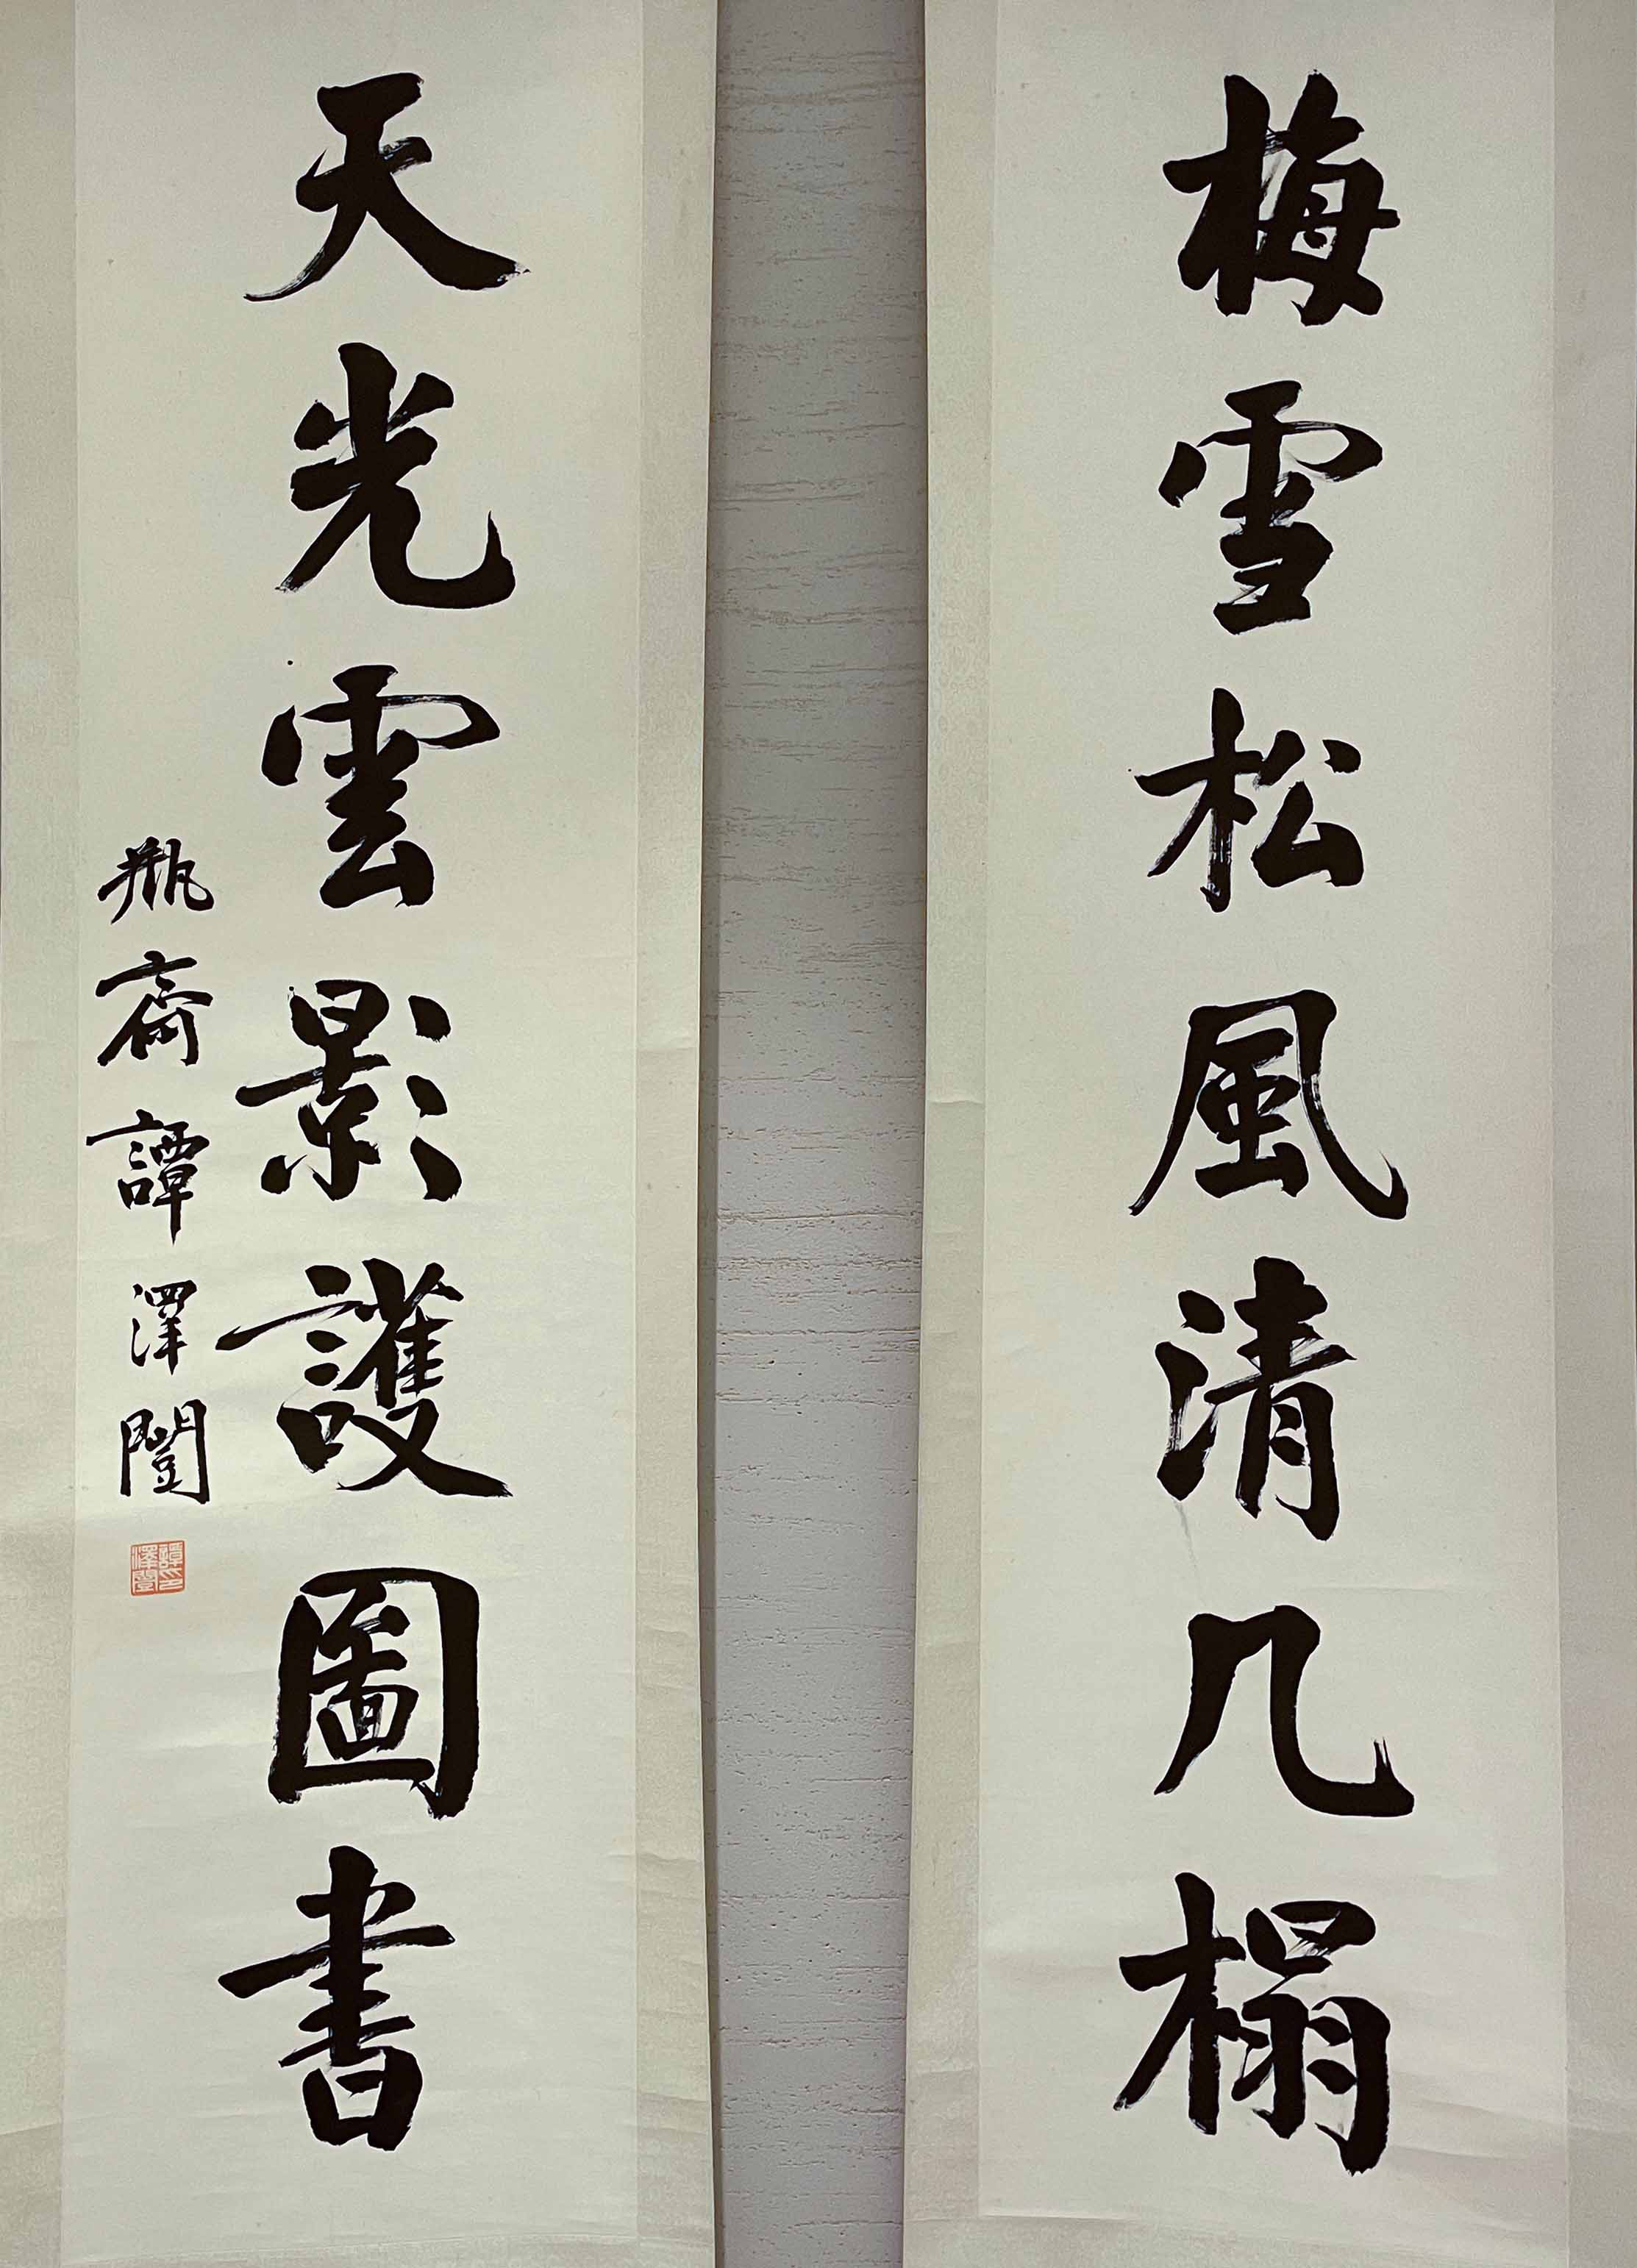 梅雪松風清几榻
天光雲影護圖書
瓶齋譚澤闓
譚印
澤闓